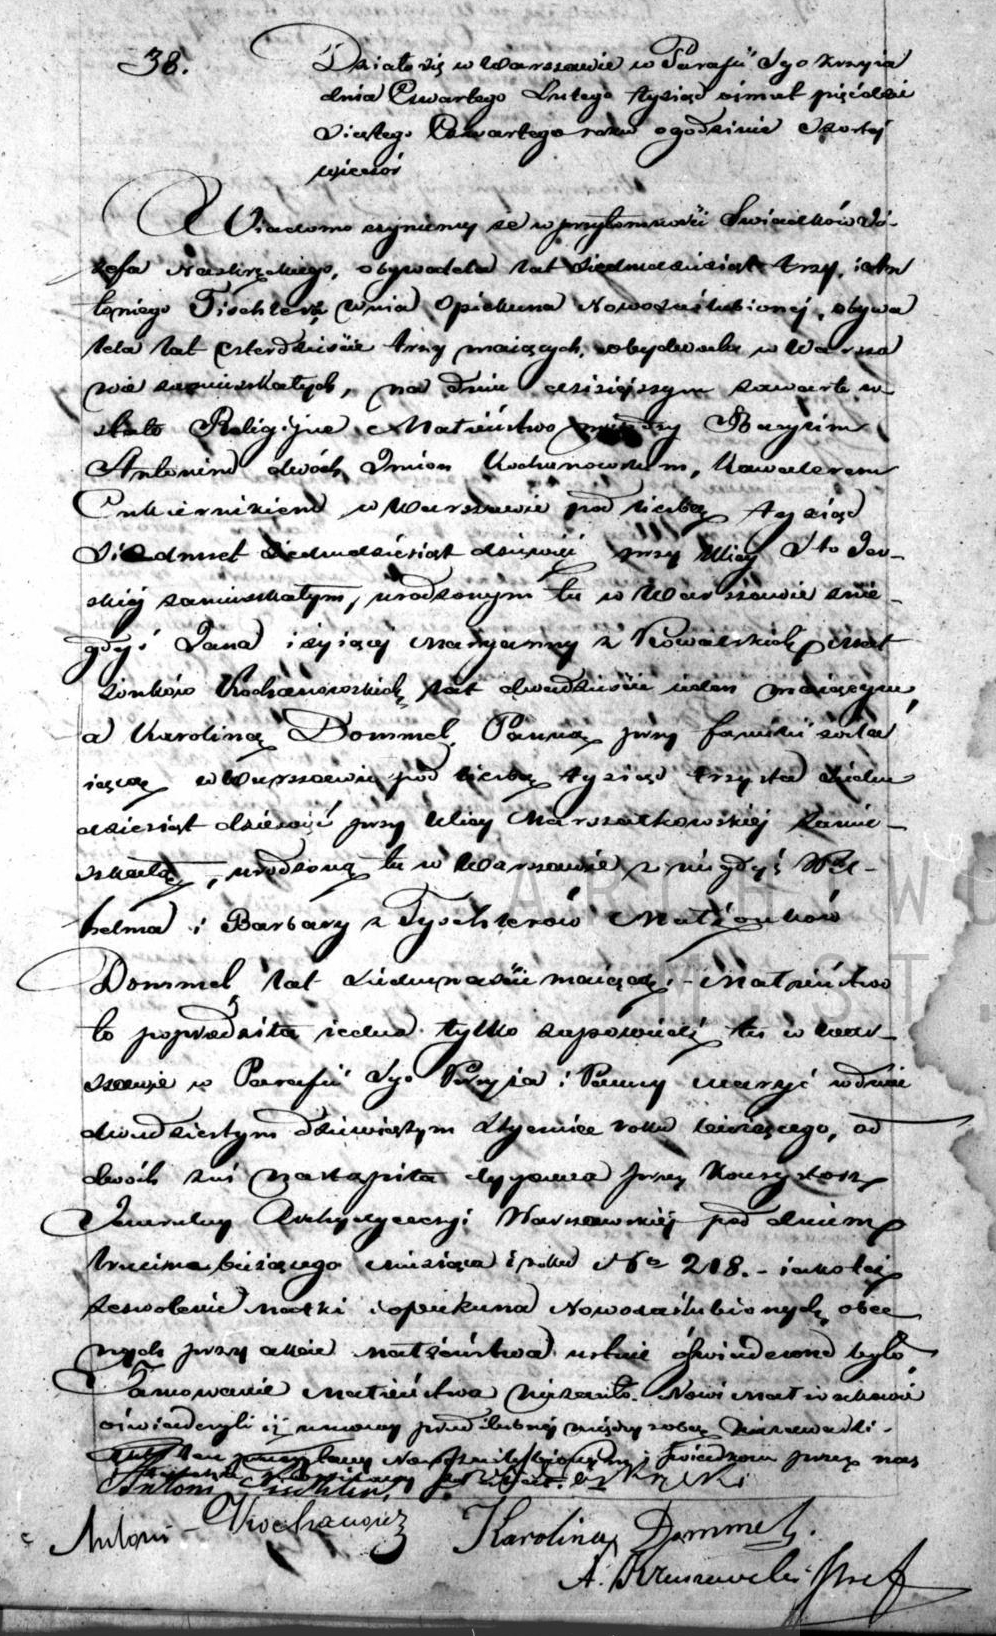 38.
Działo się w Warszawie w Parafii Sgo Krzyża
dnia Czwartego Lutego tysiąc ośmset pięćdzie
siątego Czwartego roku o godzinie Szostej
wieczór
Wiadomo czyniemy że w przytomności Świadków Jó-
zefa obywatela lat siedmdziesiąt trzy, i An
toniego Tischlera wuia Opiekuna Nowozaślubionej, obywa
tela lat czterdzieście trzy maiących, obydwoch w Warsza
wie zamieszkałych, na dniu dzisiejszym zawarte zo
stało Religijne Małżeństwo między
Antonim dwóch Imion Kochanowskim, Kawalerem
Cukiernikiem w Warszawie pod liczbą tysiąc
siedmset siedmdziesiąt dziewięć przy Ulicy S-to Jer-
skiéj zamieszkałym, urodzonym tu w Warszawie z nie-
gdyś Jana i żyiącéj Maryanny z Kowalskich Mał
żonków Kochanowskich, lat dwadzieście ieden maiącym,
a Karoliną Dommel, Panną przy familii zosta
iącą w Warszawie pod liczbą tysiąc trzysta
dziesiąt dziewięć przy Ulicy Marszałkowskiéj zamie-
szkałą, urodzoną tu w Warszawie z niegdyś Wil-
helma i Barbary z Tyschlerów Małżonków
Dommel lat maiącą. - Małżeństwo
to poprzedziła iedna tylko zapowiedź tu w War-
szawie w Parafii Sgo Krzyża i Panny Maryi w dniu
dwudziestym dziewiątym Stycznia roku bieżącego, od
dwóch zaś nastąpiła dyspensa przez Konsystorz
Jeneralny Archydyecezyi Warszawskiéj pod dniem
trzecim bieżącego miesiąca i roku No 218. - iakoteż
zezwolenie matki i opiekuna Nowozaślubionych, obec
nych przy akcie małżeństwa ustnie oświadczone było.
Tamowanie Małżeństwa niezaszło. Nowi Małżonkowie
oświadczyli iż umowy przedślubnéj między sobą niezawarli.
Akt ten Nowozaślubionym i Świadkom przez nas
Antoni Tischler.
Antoni Kochanowski Karolina Dommel.
A.